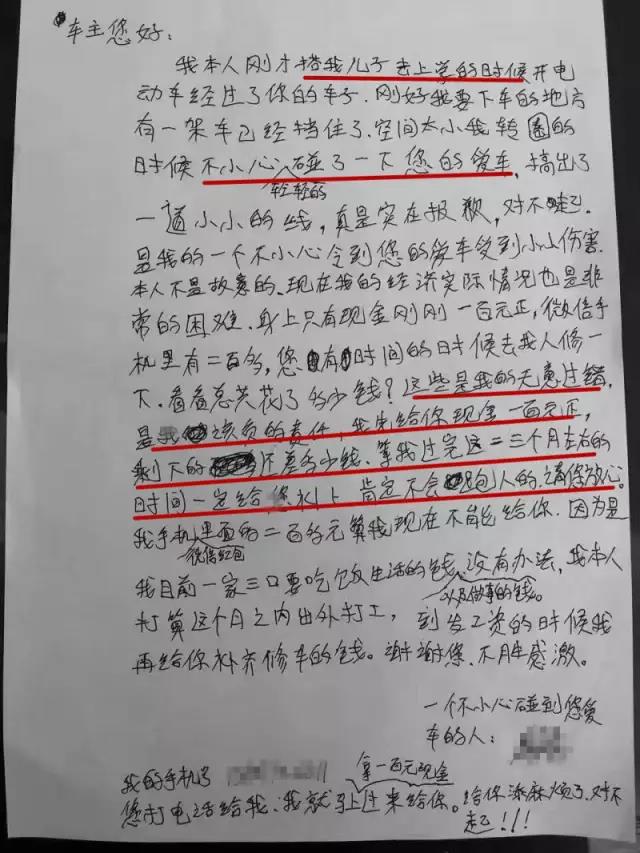 车主您好:
我本人刚才搭我儿子去上学的时候开电
动车经过了你的车子.刚好我要下车的地方
有一架车已经挡住了.空间太小我转圈的
时候不小心轻轻的碰了一下您的爱车,搞出了
一道小小的线,真是实在报歉,对不起.
是我的一个不小心令到您的爱车受到小小伤害.
本人不是故意的.现在我的经济实际情况也是非
常的困难.身上只有现金刚刚一百元正,微信手
机里有二百多,您有时间的时候去找人修一
下.看看总共花了多少钱?这些是我的无意过错,
是我该负的责任,我先给你现金一百元正,
剩下的还差多少钱.等我过完这二三个月左右的
时间一定给您补上 肯定不会跑人的.请您放心.
我手机里面的微信红包二百多元算我现在不能给你.因为是
我目前一家三口要吃饭生活的钱,以及做事的钱。没有办法,我本人
打算这个月之内出外打工,到发工资的时候我
再给你补齐修车的钱。谢谢您.不胜感激。
一个不小心碰到您爱
车的人:
我的手机号
您打电话给我.我就马上拿一百元现金过来给你。给你添麻烦了.对不
起!!!